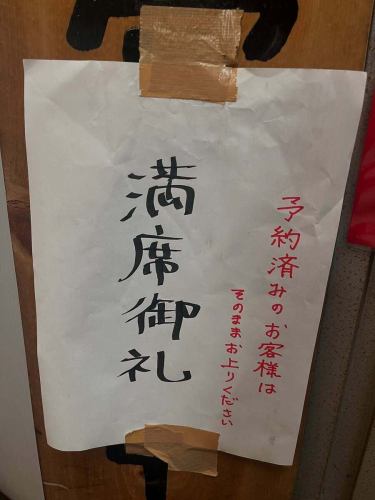 予約済みのお客様は
そのままお上りください
満席御礼